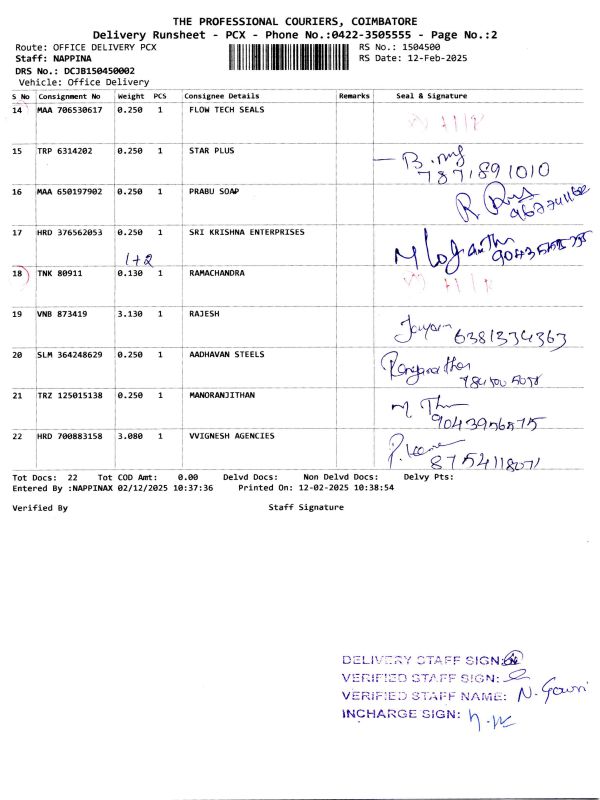 THE PROFESSIONAL COURIERS, COIMBATORE
Delivery Runsheet - PCX - Phone No.:0422-3505555 - Page No.:2
Route: OFFICE DELIVERY PCX RS No.: 1504500
Staff: NAPPINA RS Date: 12-Feb-2025
DRS No.: DCJB150450002
Vehicle: Office Delivery
S No Consignment No Weight PCS Consignee Details Remarks Seal & Signature
14 MAA 706530617 0.250 1 FLOW TECH SEALS
15 TRP 6314202 0.250 1 STAR PLUS
7871891010
16 MAA 650197902 0.250 1 PRABU SOAP
17 HRD 376562053 0.250 1 SRI KRISHNA ENTERPRISES
1+2
18 TNK 80911 0.130 1 RAMACHANDRA
19 VNB 873419 3.130 1 RAJESH
6381334363
20 SLM 364248629 0.250 1 AADHAVAN STEELS
21 TRZ 125015138 0.250 1 MANORANJITHAN
22 HRD 700883158 3.080 1 VVIGNESH AGENCIES
Tot Docs: 22 Tot COD Amt: 0.00 Delvd Docs: Non Delvd Docs: Delvy Pts:
Entered By :NAPPINAX 02/12/2025 10:37:36 Printed On: 12-02-2025 10:38:54
Verified By Staff Signature
DELIVERY STAFF SIGN:
VERIFIED STAFF SIGN:
VERIFIED STAFF NAME: N. Gowri
INCHARGE SIGN: